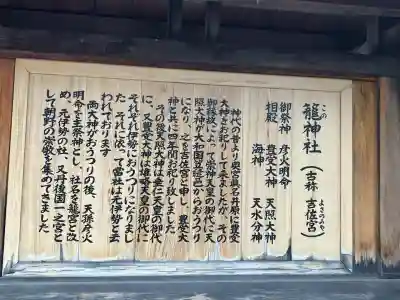 この
籠神社(古称 吉佐宮)
よさのみや
御祭神 彦火明命
相殿 豊受大神 天照大神
海神 天水分神
神代の昔より奥宮眞名井原に豊受
大神をお祀りして来ましたが、その
御縁故によって崇神天皇の御代に天
照大神が大和国笠縫邑からおうつり
になり、之を吉佐宮と申し、豊受大
神と共に四年間お祀り致しました。
その後天照大神は垂仁天皇の御代
に、又豊受大神は雄略天皇の御代に
それぞれ伊勢におうつりになりまし
た。それに依って當社は元伊勢と云
われております。
両大神がおうつりの後、天孫彦火
明命を主祭神とし、社名を籠宮と改
め、元伊勢の社、又丹後国一之宮と
して朝野の崇敬を集めてきました。